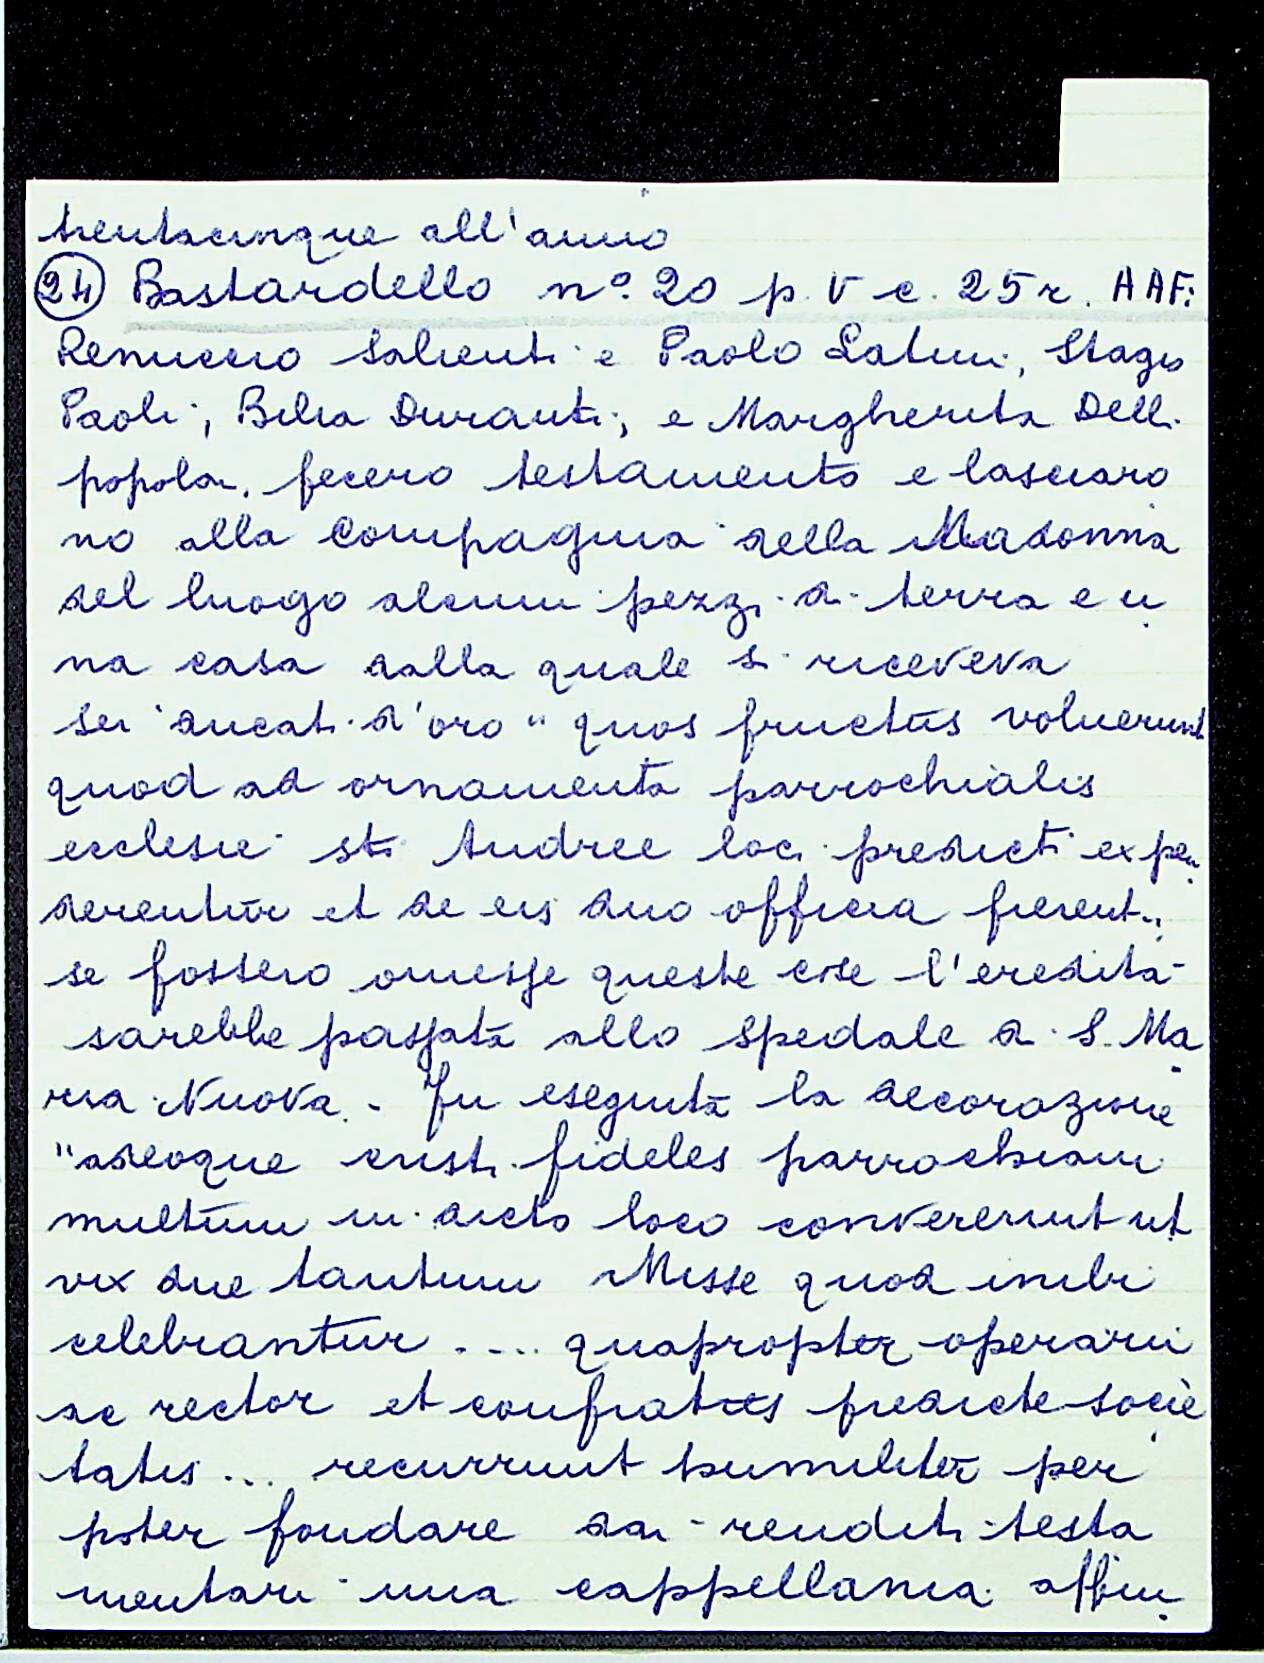 trentacinque all'anno
24 Bastardello n°. 20 p. V c. 25 r. AAF:
Renuccio Salienti e Paolo Latini, Stagio
Paoli, Bilia Duranti, e Margherita Dell.
popolan. fecero testamento e lasciaro
no alla Compagnia della Madonna
del luogo alcuni pezzi di terra e u
na casa dalla quale si riceveva
sei ducati d'oro " quos fructus voluerunt
quod ad ornamenta parrochialis
ecclesie sti Andree loci predicti expen
derentur et de eis duo officia fierent..
se fossero omesse queste cose l'eredità
sarebbe passata allo spedale di S. Ma
ria Nuova. - Fu eseguita la decorazione
"adeoque cristi fideles parrochiani
multum in dicto loco convenerunt ut
vix due tantum Misse quod inibi
celebrantur .... quapropter operarii
ac rector et confratres predicte socie
tatis ... recurrunt humiliter per
poter fondare dai redditi testa
mentari una cappellania affin